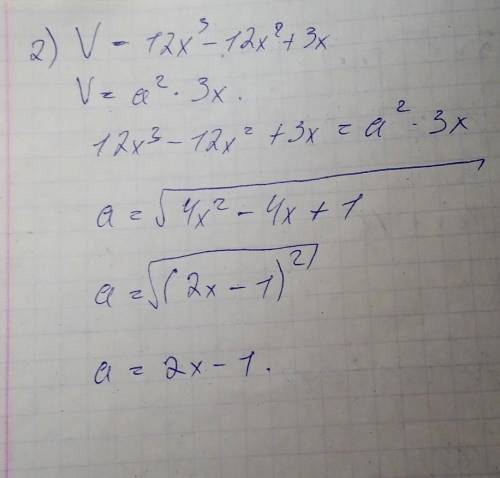 2) V = 12x³ - 12x² + 3x
V = a² · 3x.
12x³ - 12x² + 3x = a² · 3x
a = √(4x² - 4x + 1)
a = √((2x - 1)²)
a = 2x - 1.